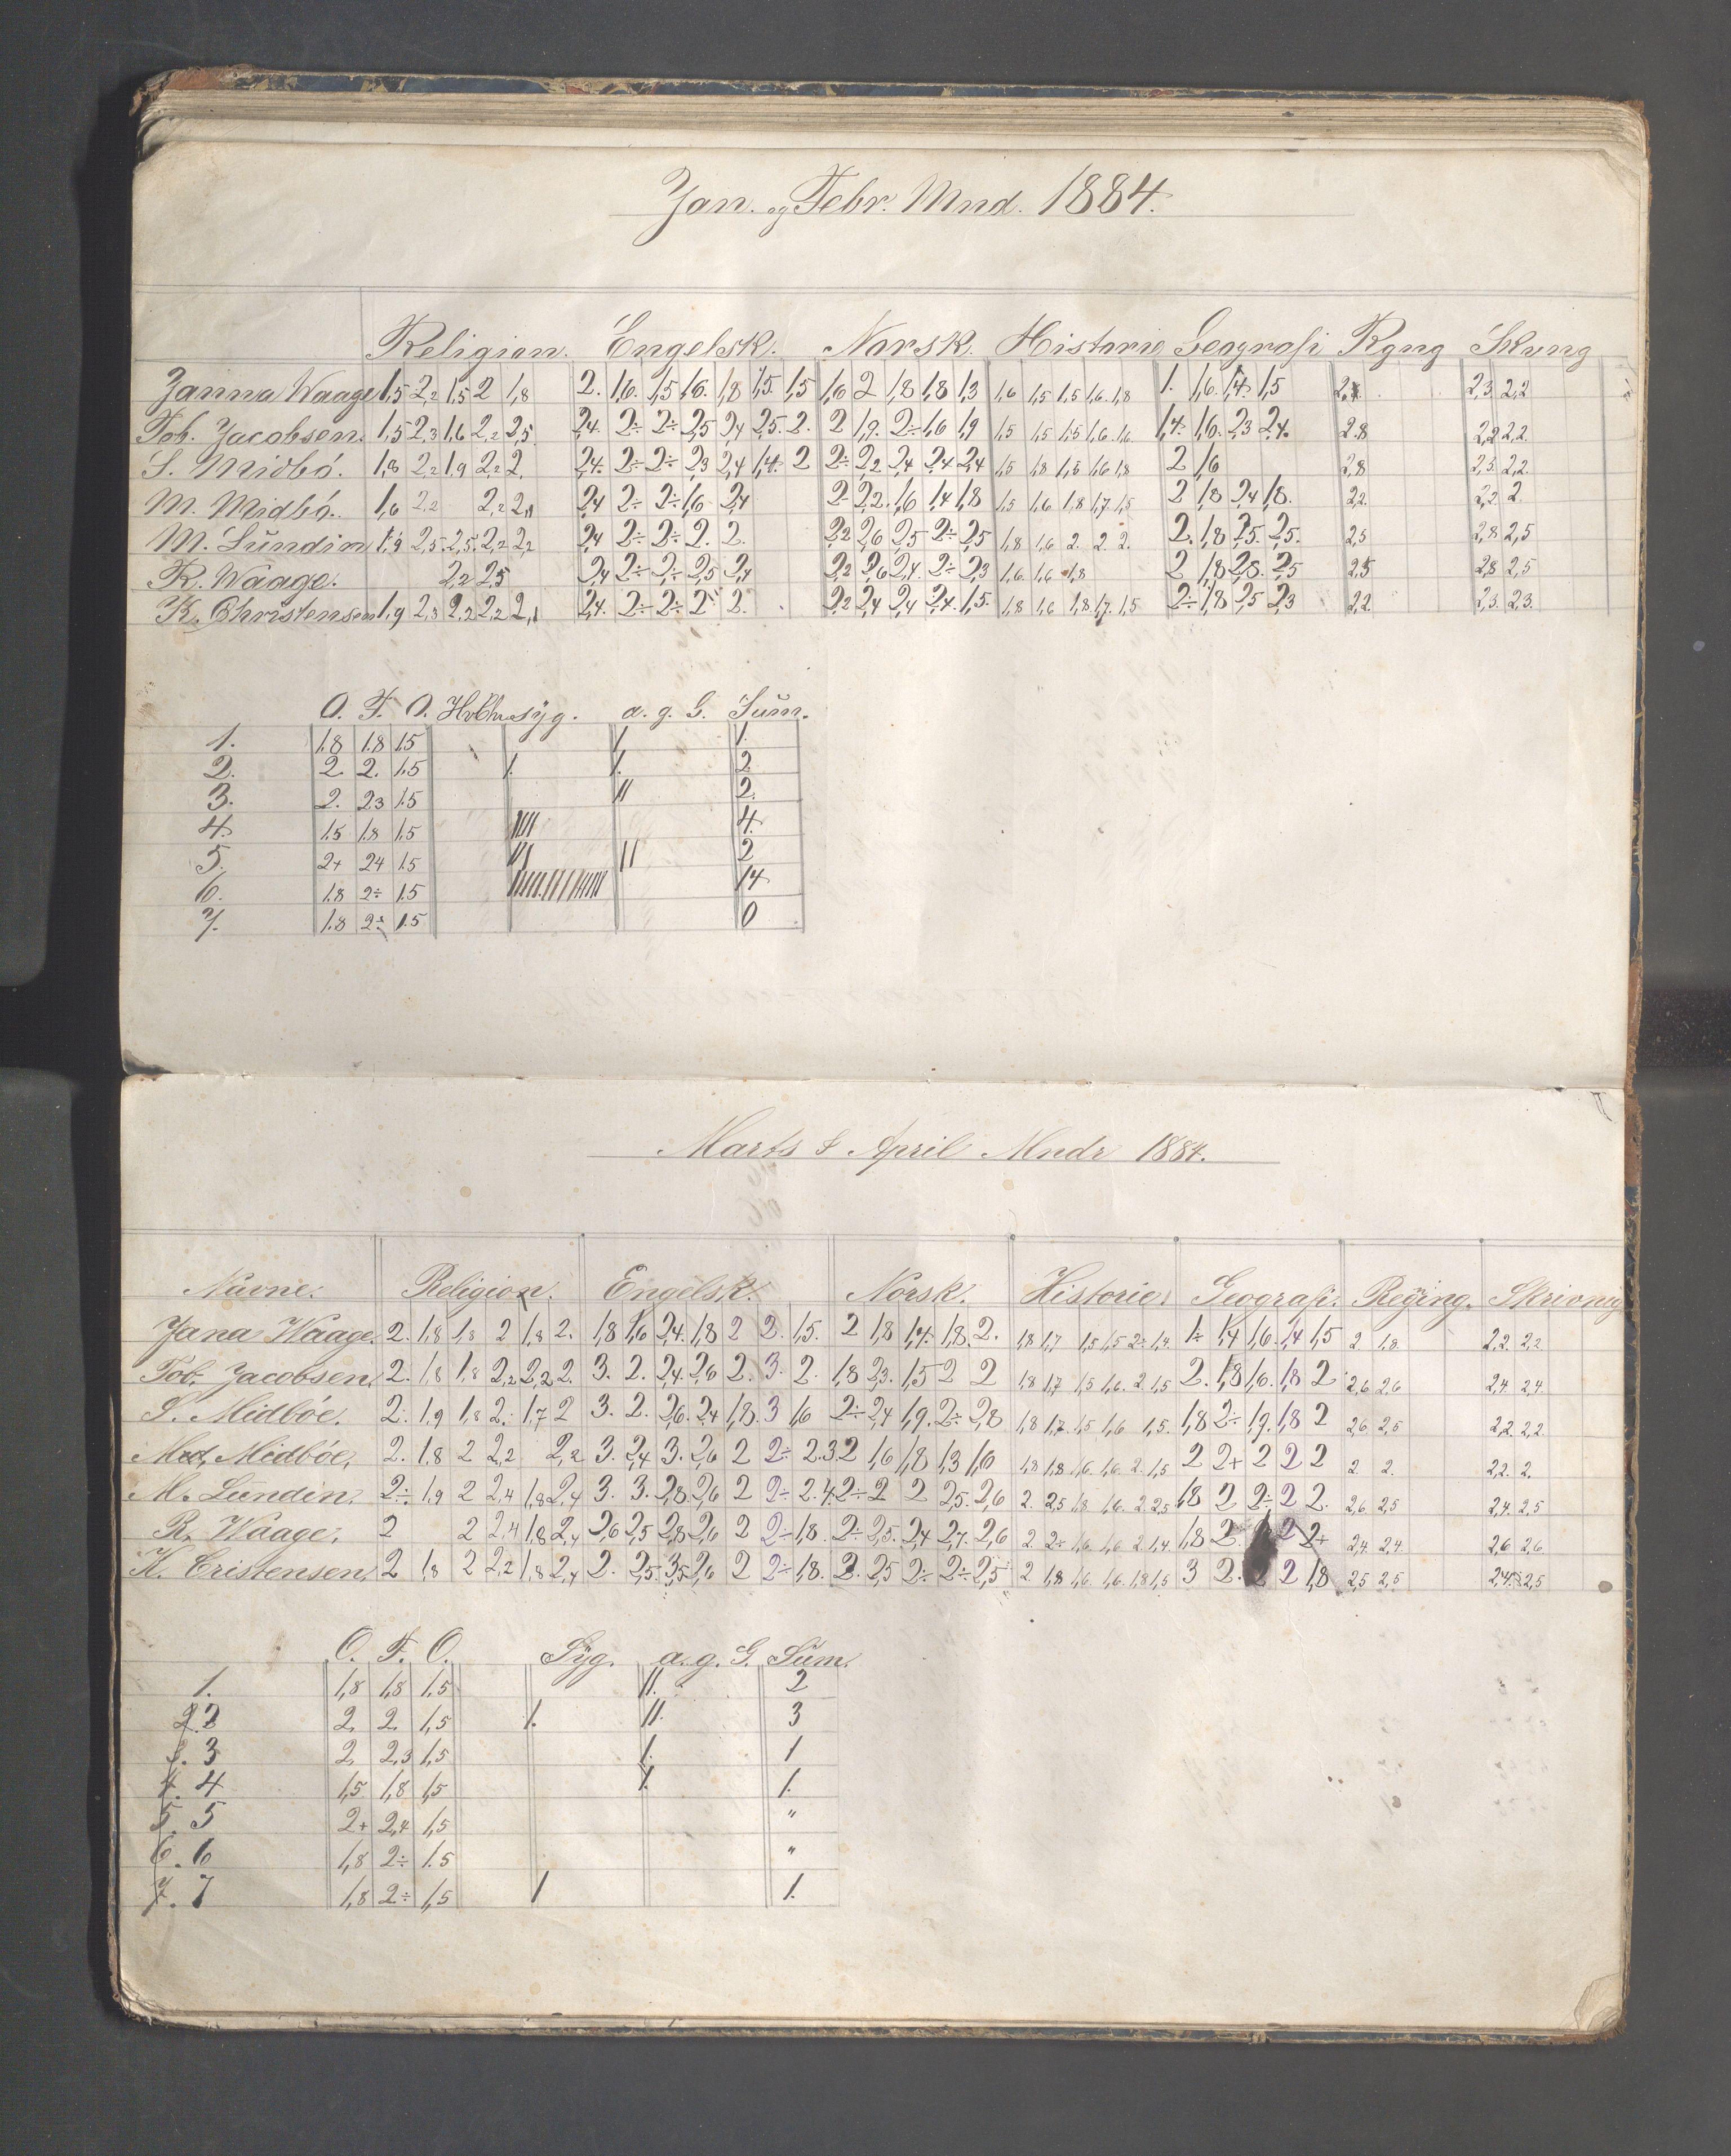 Jan. og Febr. Mnd. 1884.
Religion. Engelsk. Norsk. Historie Geografi Rgng Skrvng
Janna Waage 1,5 2,2 1,5 2 1,8 2. 1,6. 1,5 1,6. 1,8 1,5. 1,5 1,6 2 1,8 1,8 1,3 1,6 1,5 1,5 1,6. 1,8 1. 1,6 1,4. 1,5 2,3 2,2
Tob. Jacobsen. 1,5 2,3 1,6 2,2 2,5 2,4. 2÷ 2÷ 2,5 2,4 2,5. 2. 2 1,9. 2÷ 1,6 1,9 1,5 1,5 1,5 1,6. 1,6. 1,4. 1,6. 2,3 2,4. 2,8 2,2 2,2.
S. Midbö. 1,8 2,2 1,9 2,2 2. 2,4. 2÷ 2÷ 2,3 2,4 1,4. 2 2÷ 2,2 2,4 2,4 2,4 1,5 1,8 1,5 1,6 1,8 2 1,6 2,8 2,3. 2,2.
M. Midbö. 1,6 2,2 2,2 2,1 2,4 2÷ 2÷ 1,6 2,4 2 2,2. 1,6 1,4 1,8 1,5 1,6 1,8 1,7. 1,5 2 1,8 2,4 1,8. 2,2. 2,2 2.
M. Lundin 1,9 2,5. 2,5. 2,2 2,2 2,4 2÷ 2÷ 2. 2. 2,2 2,6 2,5 2÷ 2,5 1,8 1,6 2. 2. 2. 2. 1,8 2,5. 2,5. 2,5 2,8 2,5
R. Waage. 2,2 2,5 2,4 2÷ 2÷ 2,5 2,4 2,2 2,6 2,4. 2÷ 2,3 1,6. 1,6 1,8 2 1,8 2,8. 2,5 2,5 2,8 2,5
K. Christensen 1,9 2,3 2,2 2,2 2,1 2,4. 2÷ 2÷ 2 2. 2,2 2,4 2,4 2,4. 1,5. 1,8 1,6 1,8 1,7. 1,5 2÷ 1,8 2,5 2,3 2,2 2,3. 2,3.
O. F. O. syg. a. g. G. Sum.
1. 1.8 1.8 1.5 1. 1.
2. 2. 2. 1.5 1. 1. 2
3. 2. 2,3 1.5 11 2.
4. 1.5 1.8 1.5 1111 4.
5. 2+ 2,4 1.5 11 2
6. 1.8 2÷ 1.5 14
7. 1.8 2÷ 1.5 0
Marts & April Mndr 1884.
Navne: Religion. Engelsk. Norsk. Historie. Geografi. Regning. Skrivnig
Jana Waage. 2. 1,8 1,8 2 1,8 2. 1,8 1,6 2,4. 1,8 2 2. 1,5. 2 1,8 1,4. 1,8. 2. 1,8 1,7 1,5 1,5 2÷ 1,4. 1÷ 1,4 1,6. 1,4 1,5 2. 1,8. 2,2. 2,2
Tob. Jacobsen. 2. 1,8 1,8 2,2 2,2 2. 3. 2. 2,4. 2,6 2. 3. 2. 1,8 2,3. 1,5 2 2 1,8 1,7 1,5 1,6. 2 1,5 2. 1,8 1,6. 1,8 2 2,6 2,6 2,4. 2,4.
S. Midböe. 2. 1,9 1,8 2. 1,7 2 3. 2. 2,6. 2,4 1,8. 3 1,6 2÷ 2,4 1,9. 2÷ 2,8 1,8 1,7. 1,5 1,6 1,5. 1,8 2÷ 1,9. 1,8 2 2,6 2,5 2,2. 2,2
Midböe. 2. 1.8 2 2,2 2,2 3. 2,4 3. 2,6 2 2÷ 2.3 2 1,6 1,8 1,3 1,6 1,8 1,8 1,6 1,6 2 1,5 2 2+ 2 2 2 2 2. 2,2. 2.
M. Lundin. 2÷ 1,9 2 2,4 1,8 2,4 3. 3. 2,8. 2,6 2 2÷ 2.4. 2÷ 2 2 2,5. 2,6 2. 2,5 1,8 1,6. 2. 2,5 1,8 2 2÷ 2 2. 2,6 2,5 2,4. 2,5
R. Waage. 2 2 2,4 1,8 2,4 2,6 2,5 2,8 2,6 2 2÷ 1,8. 2÷ 2,5. 2,4 2,7. 2,6 2. 2÷ 1,6 1,6 2 1,4. 1,8 2. 2 2+ 2,4. 2,4. 2,6 2,6
K. Cristensen. 2 1,8 2 2,2 1,8 2,4 2. 2,5. 3,5 2,6 2 2÷ 1,8. 2. 2,5 2÷ 2÷ 2,5 2. 1,8 1,6. 1,6. 1,8 1,5 3 2. 2 1,8 2,5 2,5 2,4. 2,5
O. F. O. Syg. a. g. G. Sum.
1. 1,8 1,8 1.5 11. 2
2.2 2. 2. 1,5 1. 11. 3
3 2. 2,3 1,5 1. 1
4. 4 1,5 1,8 1,5 1. 1.
5. 5 2+ 2,4 1,5 "
6. 6 1,8 2÷ 1.5 "
7. 7 1,8 2÷ 1,5 1 1.